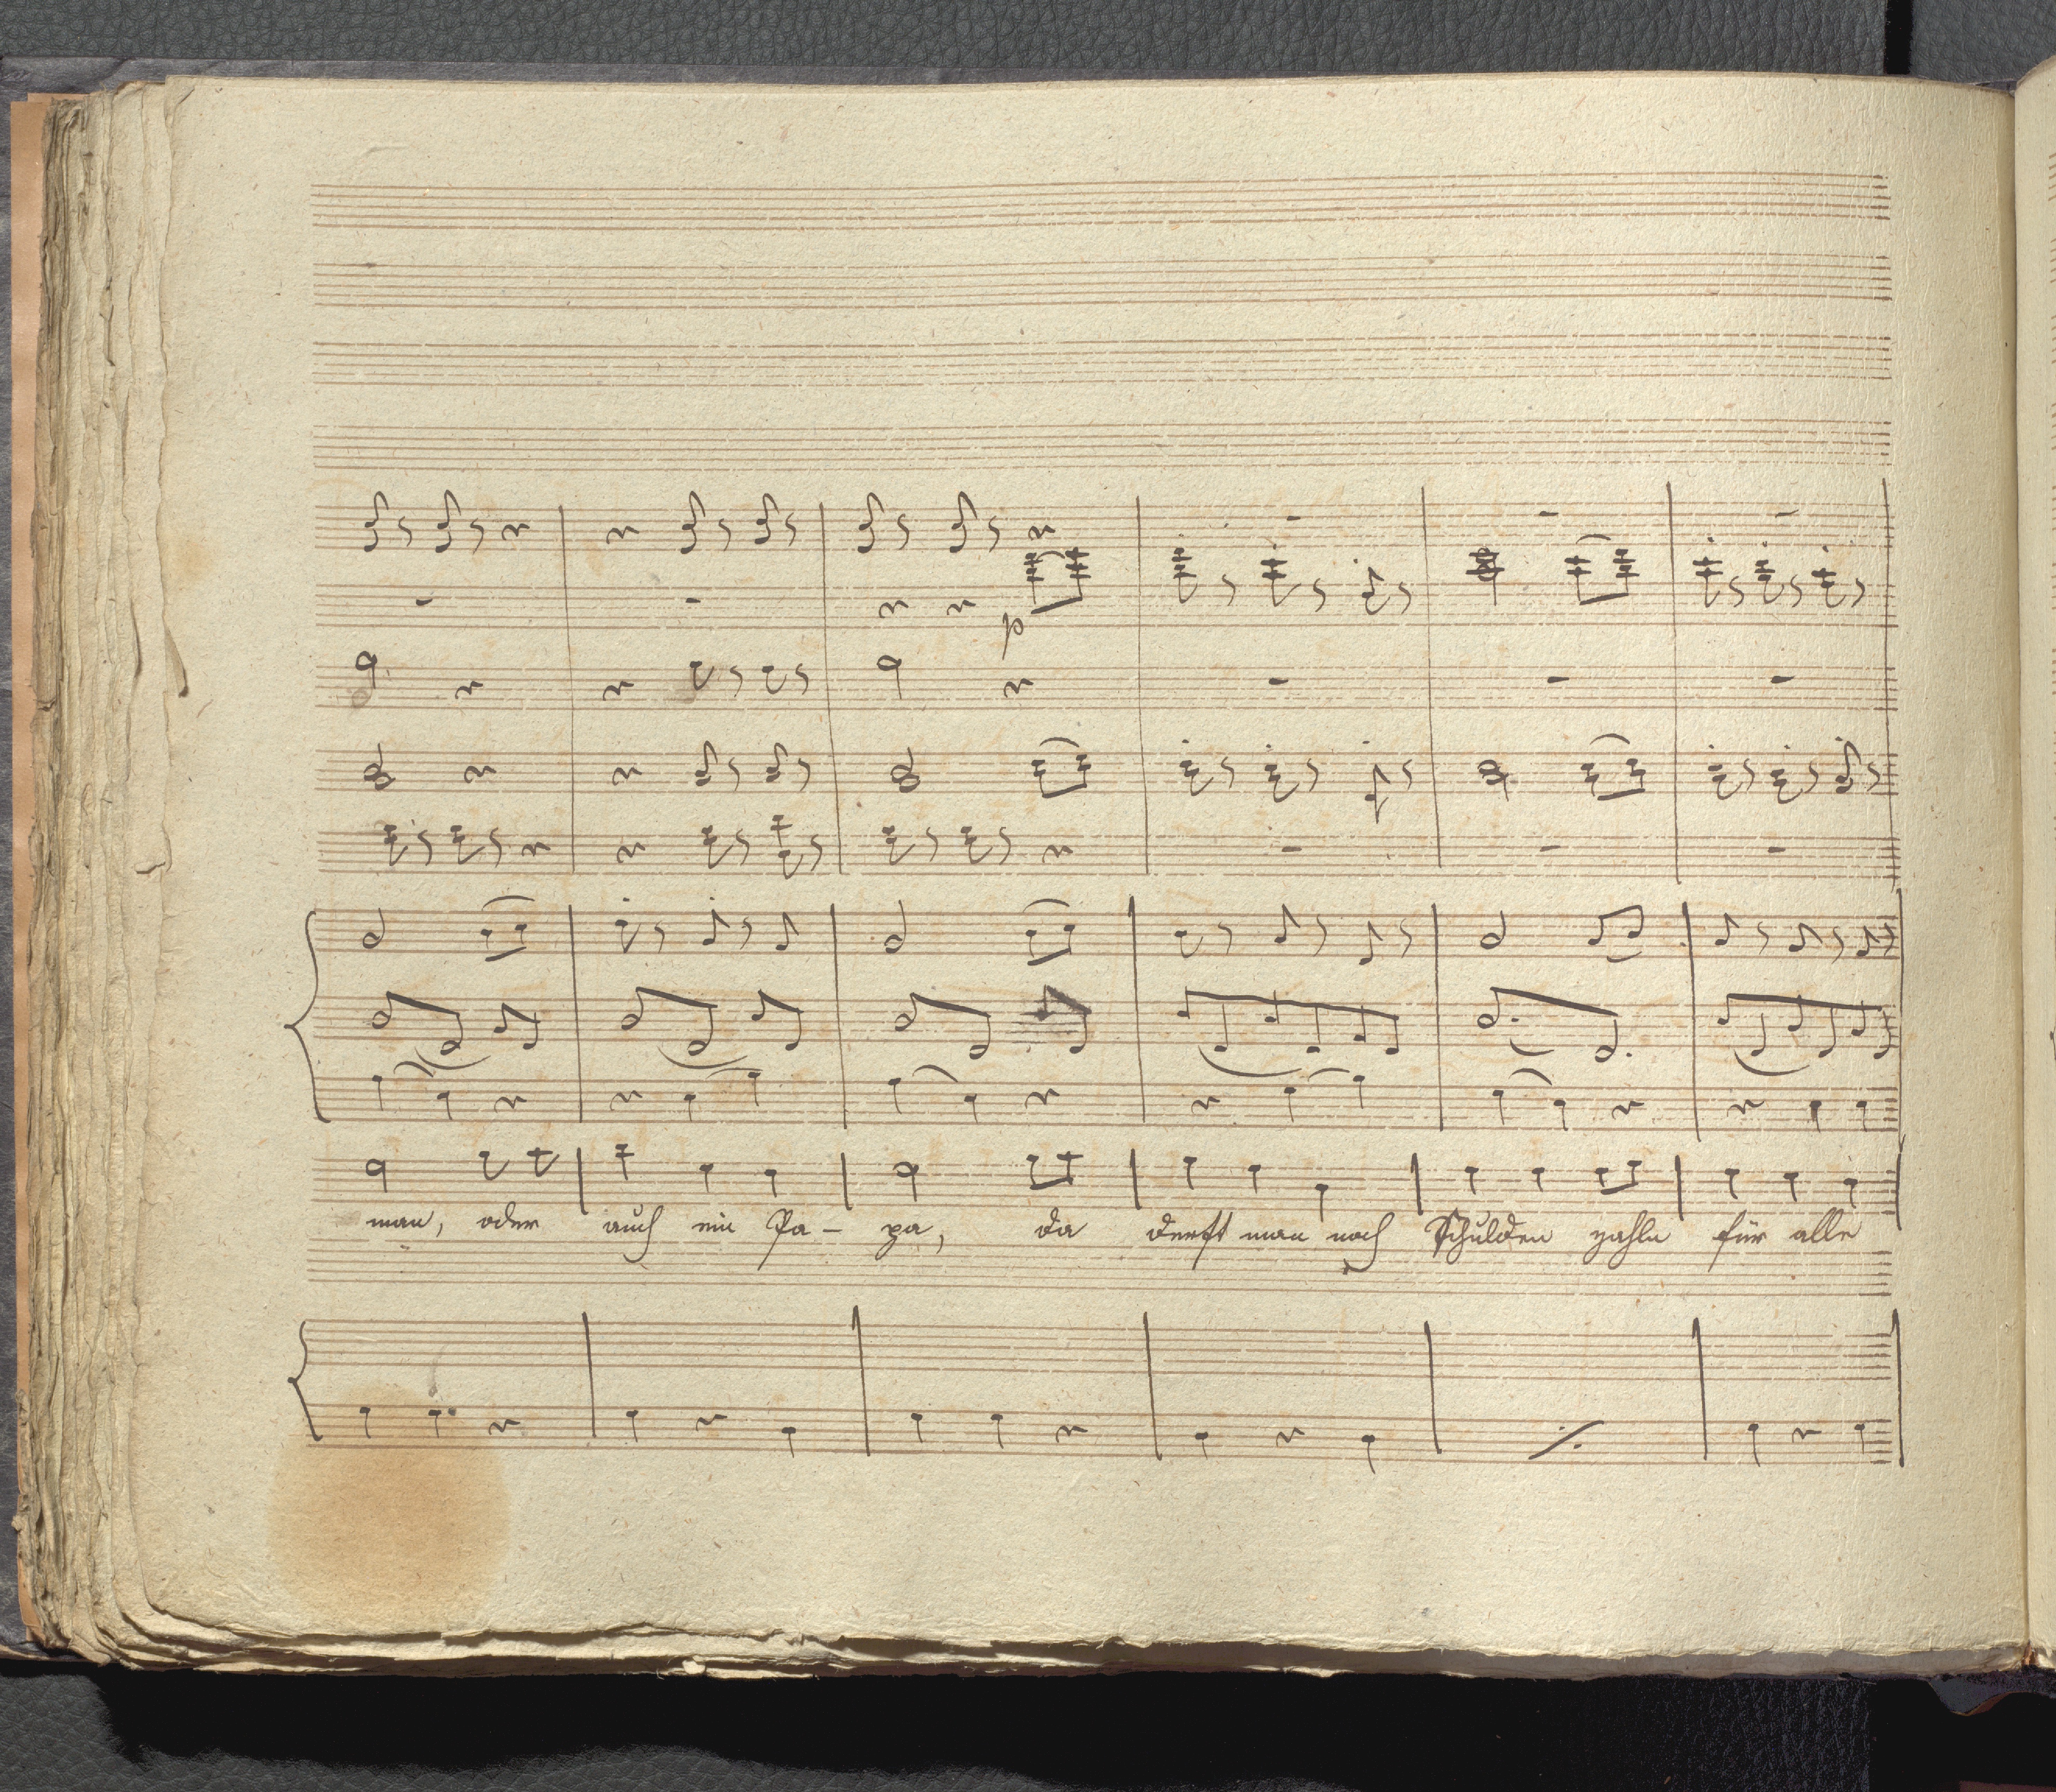 p
man, oder auch ein Pa- pa, da derft man noch Schulden zahln für alle